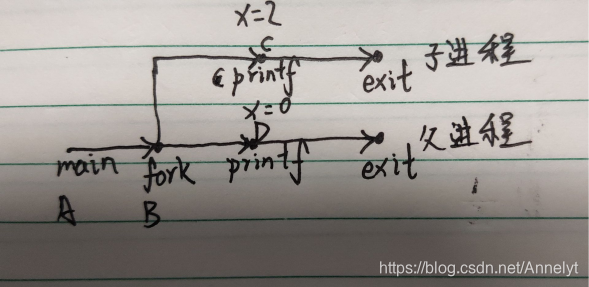 x=2
C
printf
exit 子进程
x=0
D
main fork printf exit 父进程
A B
https://blog.csdn.net/Annelyt